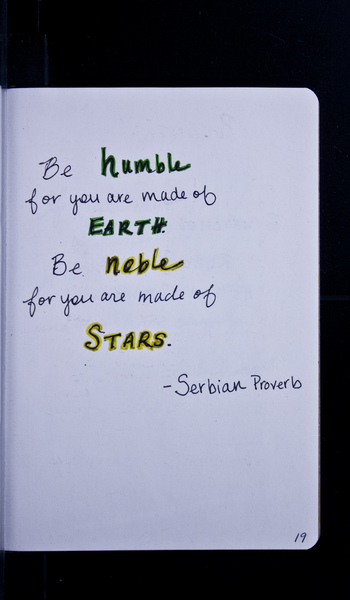 Be humble
for you are made of
EARTH.
Be noble
for you are made of
STARS.
-Serbian Proverb
19